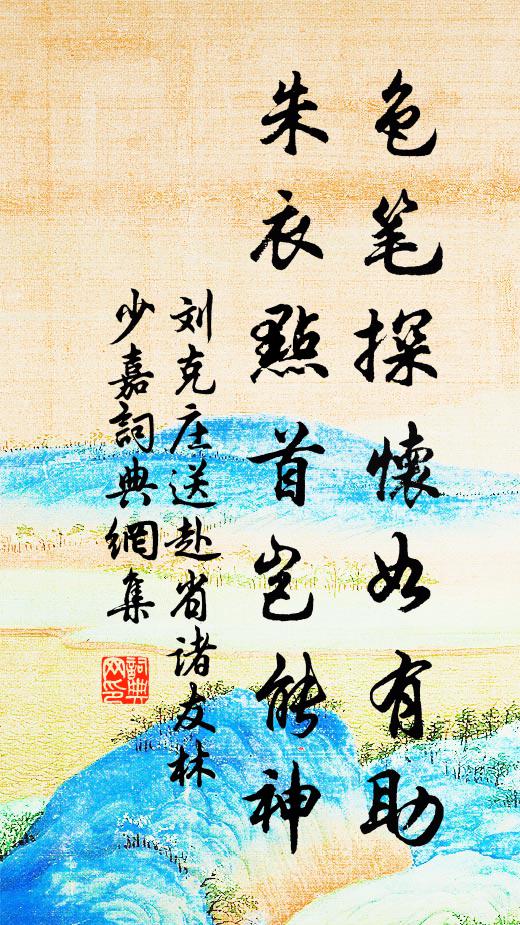 色笔探懷如有助
朱衣點首豈能神
刘克庄送赴省诸友林
少嘉詞典網集
詞典
网印